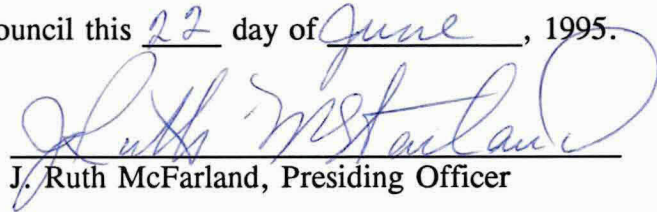 ouncil this 22 day of June, 1995.
J Ruth McFarland
J. Ruth McFarland, Presiding Officer